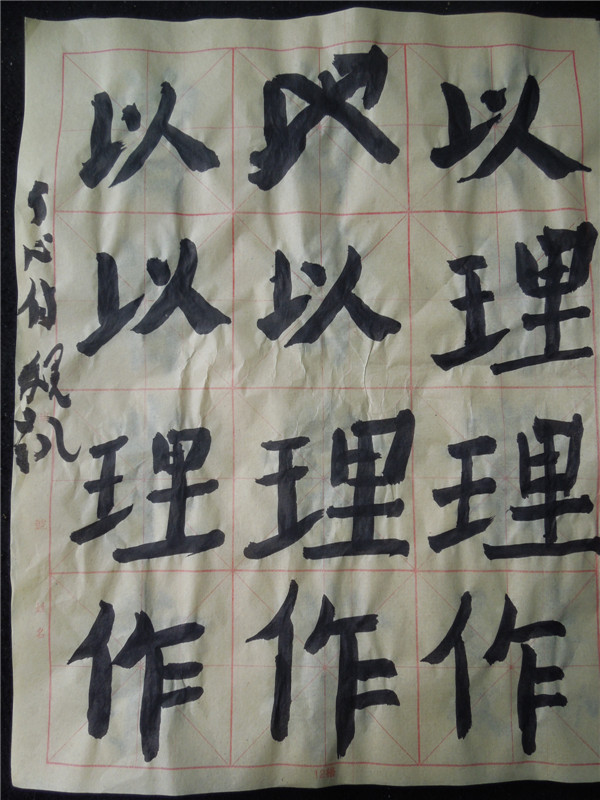 以 以
以 以 理
理 理 理
作 作 作